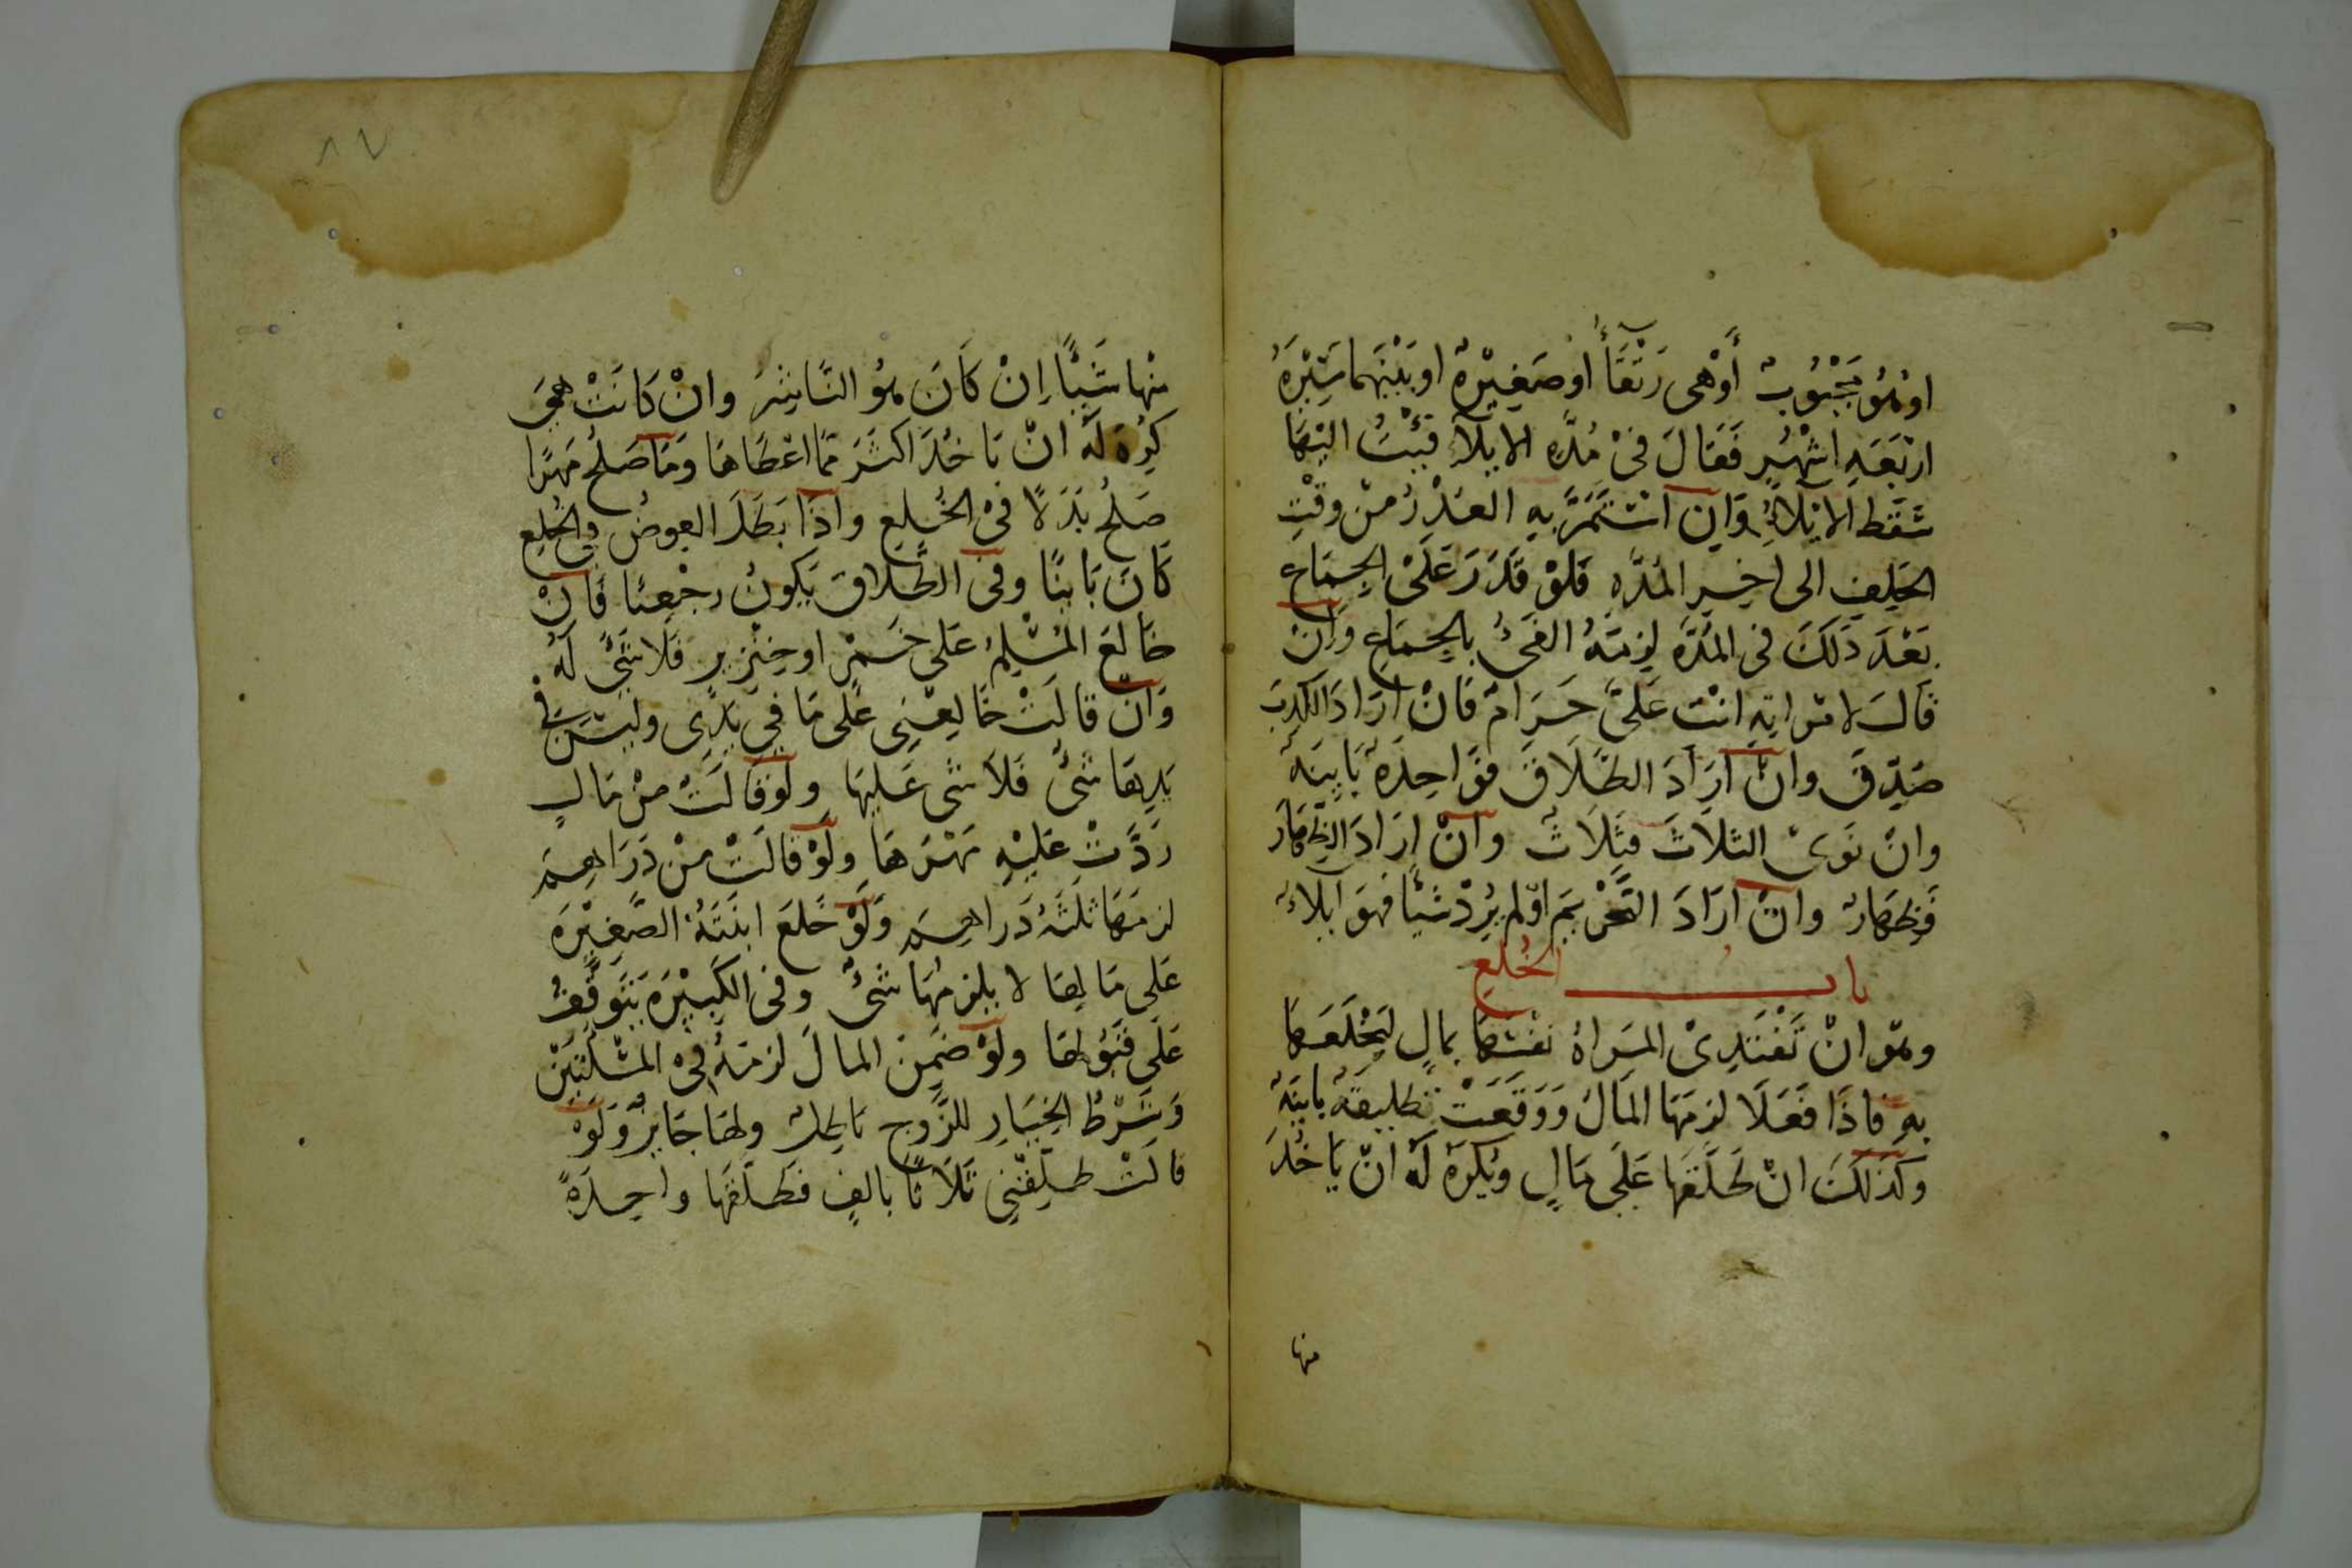 او هُوَ مَجْبُوبٌ أَوْ هى رَتْقَأُ او صَغِيْرَةٌ او بَيْنَهما مَسِيْرَةُ
ارْبَعَهِ اشْهُرٍ فَقَالَ فىْ مُدَّهِ الايلآءِ فِئْتُ اليْهَا
سَقَط الايْلآءُ وَاِن اسْتَمَرَّ بِهِ العُذْرُ مِنْ وقْتِ
الحَلِفِ الى اخِيِر المُدَّهِ فَلَوْ قَدَرَ عَلَىْ الجِمَاعِ
بَعْدَ ذَلَكَ فى المُدَّهِ لِزِمَهُ الفَىُ بِالجِمَاعِ وَانْ
قَالَ لامْراتِهِ انْت عَلىَّ حَرَامٌ فَانْ ارَادَ الكَذِبَ
صُدِّقَ وانْ اَرَادَ الطَّلَاقَ فَوَاحِدَةٌ بَايِنَهٌ
وانْ نَوَىْ الثلَاثَ فثَلَاثٌ وانْ ارَادَ الظِهَارَ
فَظِهَارٌ وانْ ارَادَ التَحْرِيمَ اوْلم يُرِدْ شَيْأً فهَوَ ايلاءٌ
باب الخُلعِ
وهُوَ انْ تَفْتَدِىْ المَرَاةُ نفْسَهَا بمالٍ ليَخْلَعَهَا
بِهِ فاذَا فَعَلَا لزمَهَا المَالُ وَوَقَعَتْ تطليقَهٌ بايِنَهٌ
وَكَذَلَكَ انْ طَلَّقهَا عَلَى مَالٍ ويُكرَهُ لَهُ انْ يَاخُذَ
منها
٨٧
منْها شَيْأً اِنْ كَانَ هُوَ النَّاشِزُ وانْ كَانَتْ هىَ
كُرِهَ لَهُ انْ يَاخُذَ اكثَرَ مَّما اعْطَاهَا وَمَا صَلُحَ مَهرًا
صَلُحَ بَدَلًا فىْ الخُلعِ واذَا بَطَلَ العِوضُ فى الخُلعِ
كَانَ بَاينًا وفى الطَّلاقِ يَكونُ رجْعِيًا فَانْ
خَالعَ المُسْلِمُ عَلى خَمْرٍ اوخِنْزِيرٍ فَلَا شَىْءَ لَهُ
وَانْ قالَتْ خَالِعْنِى عَلى مَا فِى يَدِى وليْسَ فى
يَدِهَا شَىْءٌ فَلاَ شَى عَليهَا ولَوْ قَالَتْ مِنْ مَالٍ
رَدَّتْ عَليْهِ مَهْرَهَا ولَوْ قَالَتْ مِنْ دَرَاهِمَ
لزمَهَا ثَلَثَهُ دَراهِمَ وَلَوْ خَلعَ ابنَتَهُ الصَّغِيْرَهَ
عَلى مَالِهَا لا يلزمُهَا شَىْءٌ وفى الكَبِيْرَهِ يَتَوقَّفُ
عَلَى قَبُولِهَا ولَوْ ضَمِنَ المالَ لزمَهُ فِىْ المَسْئلتَيْنِ
وَشَرْطُ الخِيَارِ للزَّوجِ بَاطِلٌ ولهَا جَايزٌ وَلَوْ
قالَتْ طلِّقْنِى ثَلَاثًا بالفٍ فطَلَّقهَا واحِدَةً